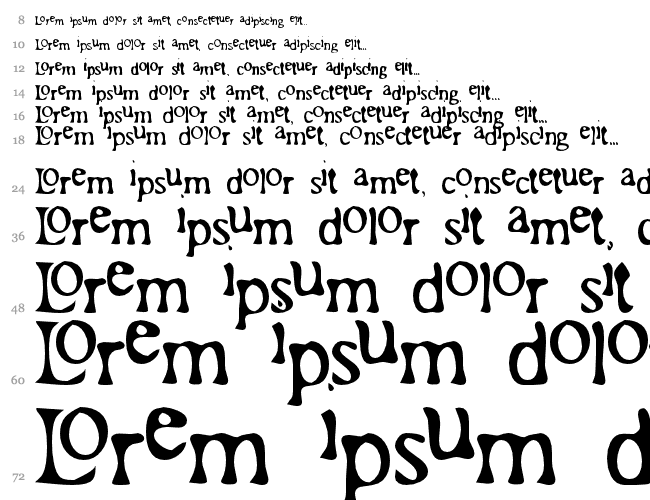 8 Lorem ipsum dolor sit amet, consectetuer adipiscing elit...
10 Lorem ipsum dolor sit amet, consectetuer adipiscing elit...
12 Lorem ipsum dolor sit amet, consectetuer adipiscing elit...
14 Lorem ipsum dolor sit amet, consectetuer adipiscing elit...
16 Lorem ipsum dolor sit amet, consectetuer adipiscing elit...
18 Lorem ipsum dolor sit amet, consectetuer adipiscing elit...
24 Lorem ipsum dolor sit amet, consectetuer ad
36 Lorem ipsum dolor sit amet, c
48 Lorem ipsum dolor sit
60 Lorem ipsum dolo
72 Lorem ipsum d